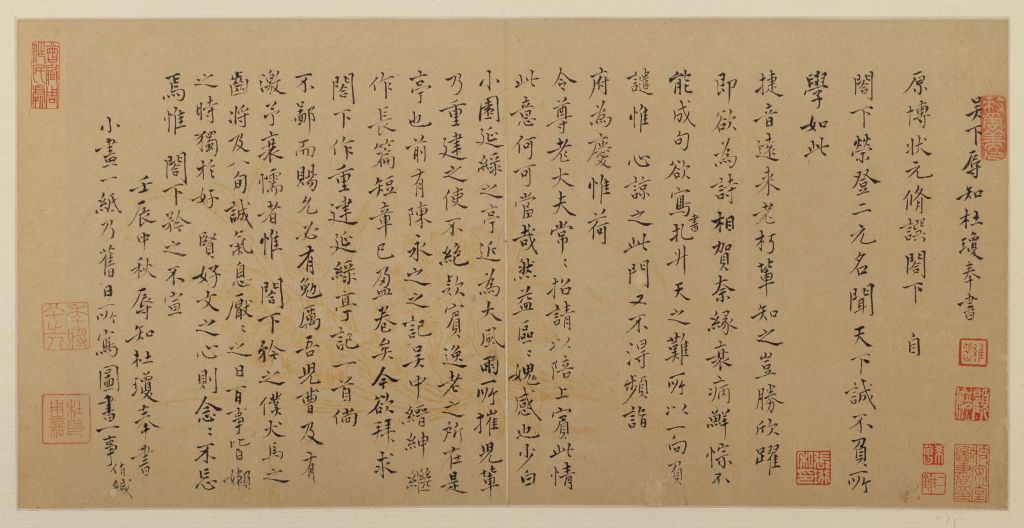 吳下辱知杜瓊奉書
原博狀元脩譔閣下　自
閣下榮登二元名聞天下誠不負所
學如此
捷音遠來老朽輩知之豈勝欣躍
即欲為詩相賀奈緣衰病鮮悰不
能成句欲寫書扎廾天之難所以一向負
譴惟　心諒之此門又不淂頻詣
府為慶惟荷
令尊老大夫常〻招請以陪上賓此情
此意何可當哉然益區〻媿感也少白
小園延緑之亭近為大風雨所摧児輩
乃重建之使不絕欵賓逸老之所在是
亭也前有陳永之之記吴中縉紳繼
作長篇短章已盈卷矣今欲拜求
閣下作重建延緑亭記一首倘
不鄙而賜允必有勉厲吾児曹及有
激予衰懦者惟　閣下矜之僕犬馬之
齒將及八旬誠氣息厭〻之日百事皆嬾
之時獨於好　賢好文之心則念〻不忘
焉惟　閣下矜之不宣
壬辰中秋辱知杜瓊奉書
小畫一紙乃舊日所寫圖書一事侑緘